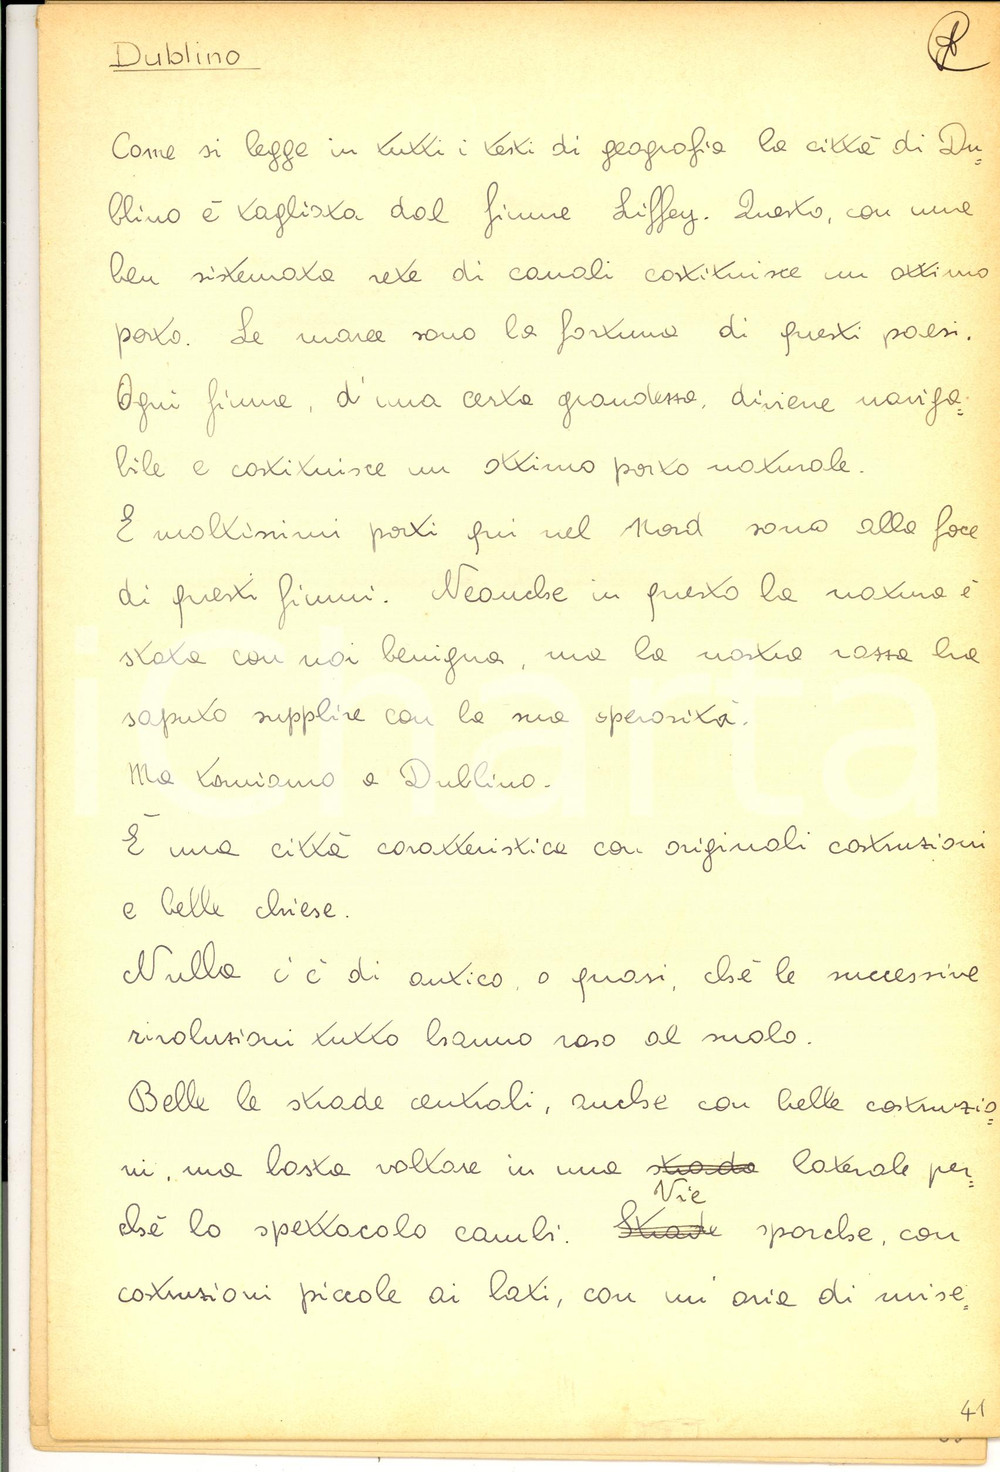 Dublino
Come si legge in tutti i testi di geografia la città di Du=
blino è tagliata dal fiume Liffey. Questo, con una
ben sistemata rete di canali costituisce un ottimo
porto. Le maree sono la fortuna di questi paesi.
Ogni fiume, d'una certa grandezza, diviene naviga=
bile e costituisce un ottimo porto naturale.
E moltissimi porti qui nel Nord sono alla foce
di questi fiumi. Neanche in questo la natura è
stata con noi benigna, ma la nostra razza ha
saputo supplire con la sua operosità.
Ma torniamo a Dublino.
È una città caratteristica con originali costruzioni
e belle chiese.
Nulla c'è di antico, o quasi, ché le successive
rivoluzioni tutto hanno raso al suolo.
Belle le strade centrali, anche con belle costruzio=
ni, ma basta voltare in una strada laterale per=
ché lo spettacolo cambi. Strade Vie sporche, con
costruzioni piccole ai lati, con un'aria di mise=
41
iCharta